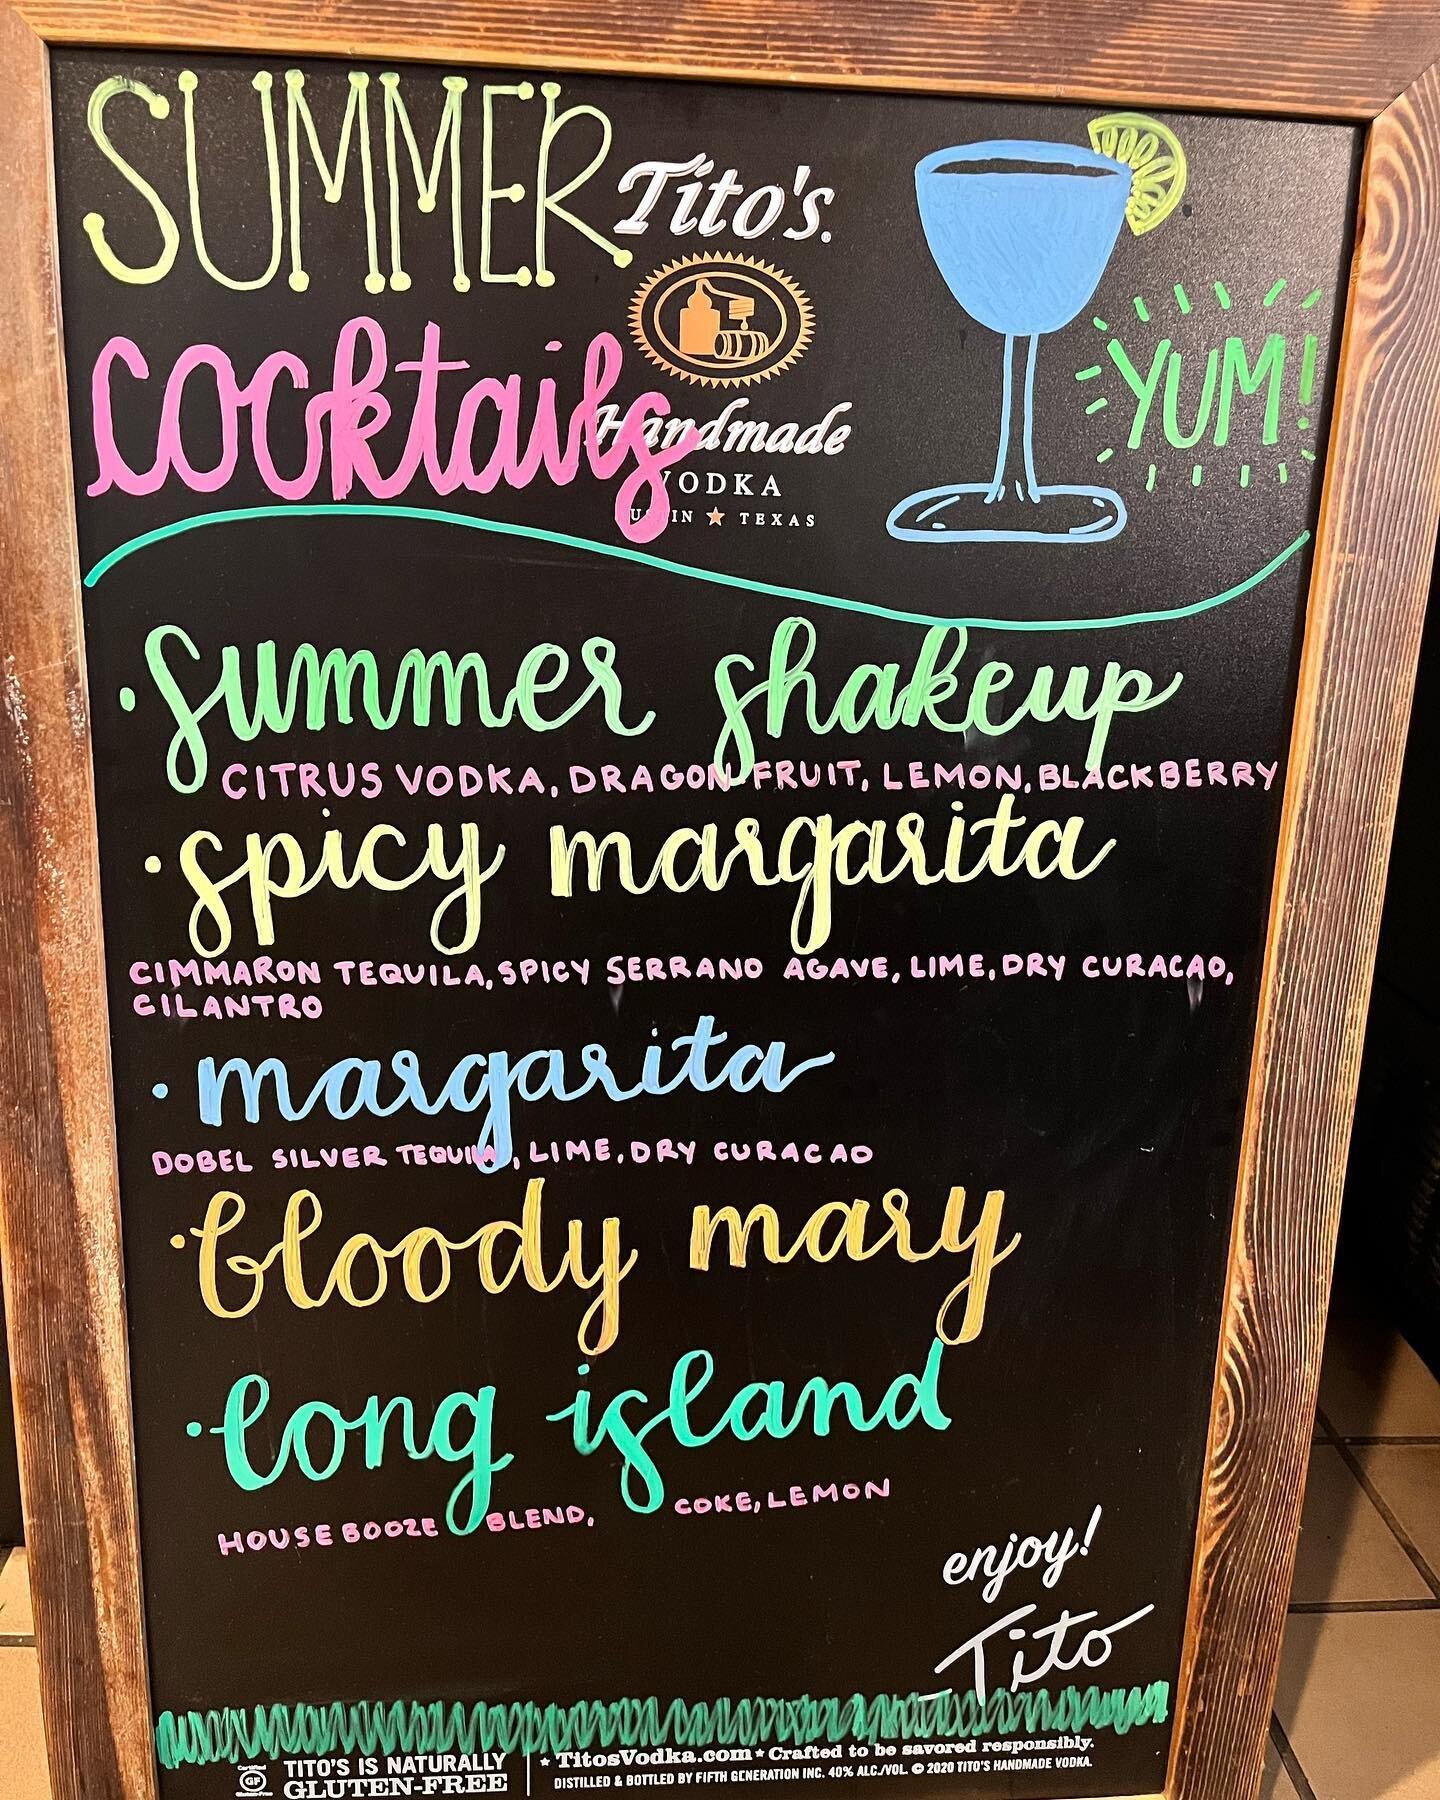 SUMMER
Tito's.
cocktails
Handmade
VODKA
TEXAS
YUM!
·summer shakeup
CITRUS VODKA, DRAGON FRUIT, LEMON, BLACKBERRY
·spicy margarita
CIMMARON TEQUILA, SPICY SERRANO AGAVE, LIME, DRY CURACAO,
CILANTRO
·margarita
DOBEL SILVER TEQUILA, LIME, DRY CURACAO
·bloody mary
·long island
HOUSE BOOZE BLEND, COKE, LEMON
enjoy!
Tito
Certified
GF
Gluten-Free
TITO'S IS NATURALLY
GLUTEN-FREE
★ TitosVodka.com ★ Crafted to be savored responsibly.
DISTILLED & BOTTLED BY FIFTH GENERATION INC. 40% ALC./VOL. © 2020 TITO'S HANDMADE VODKA.